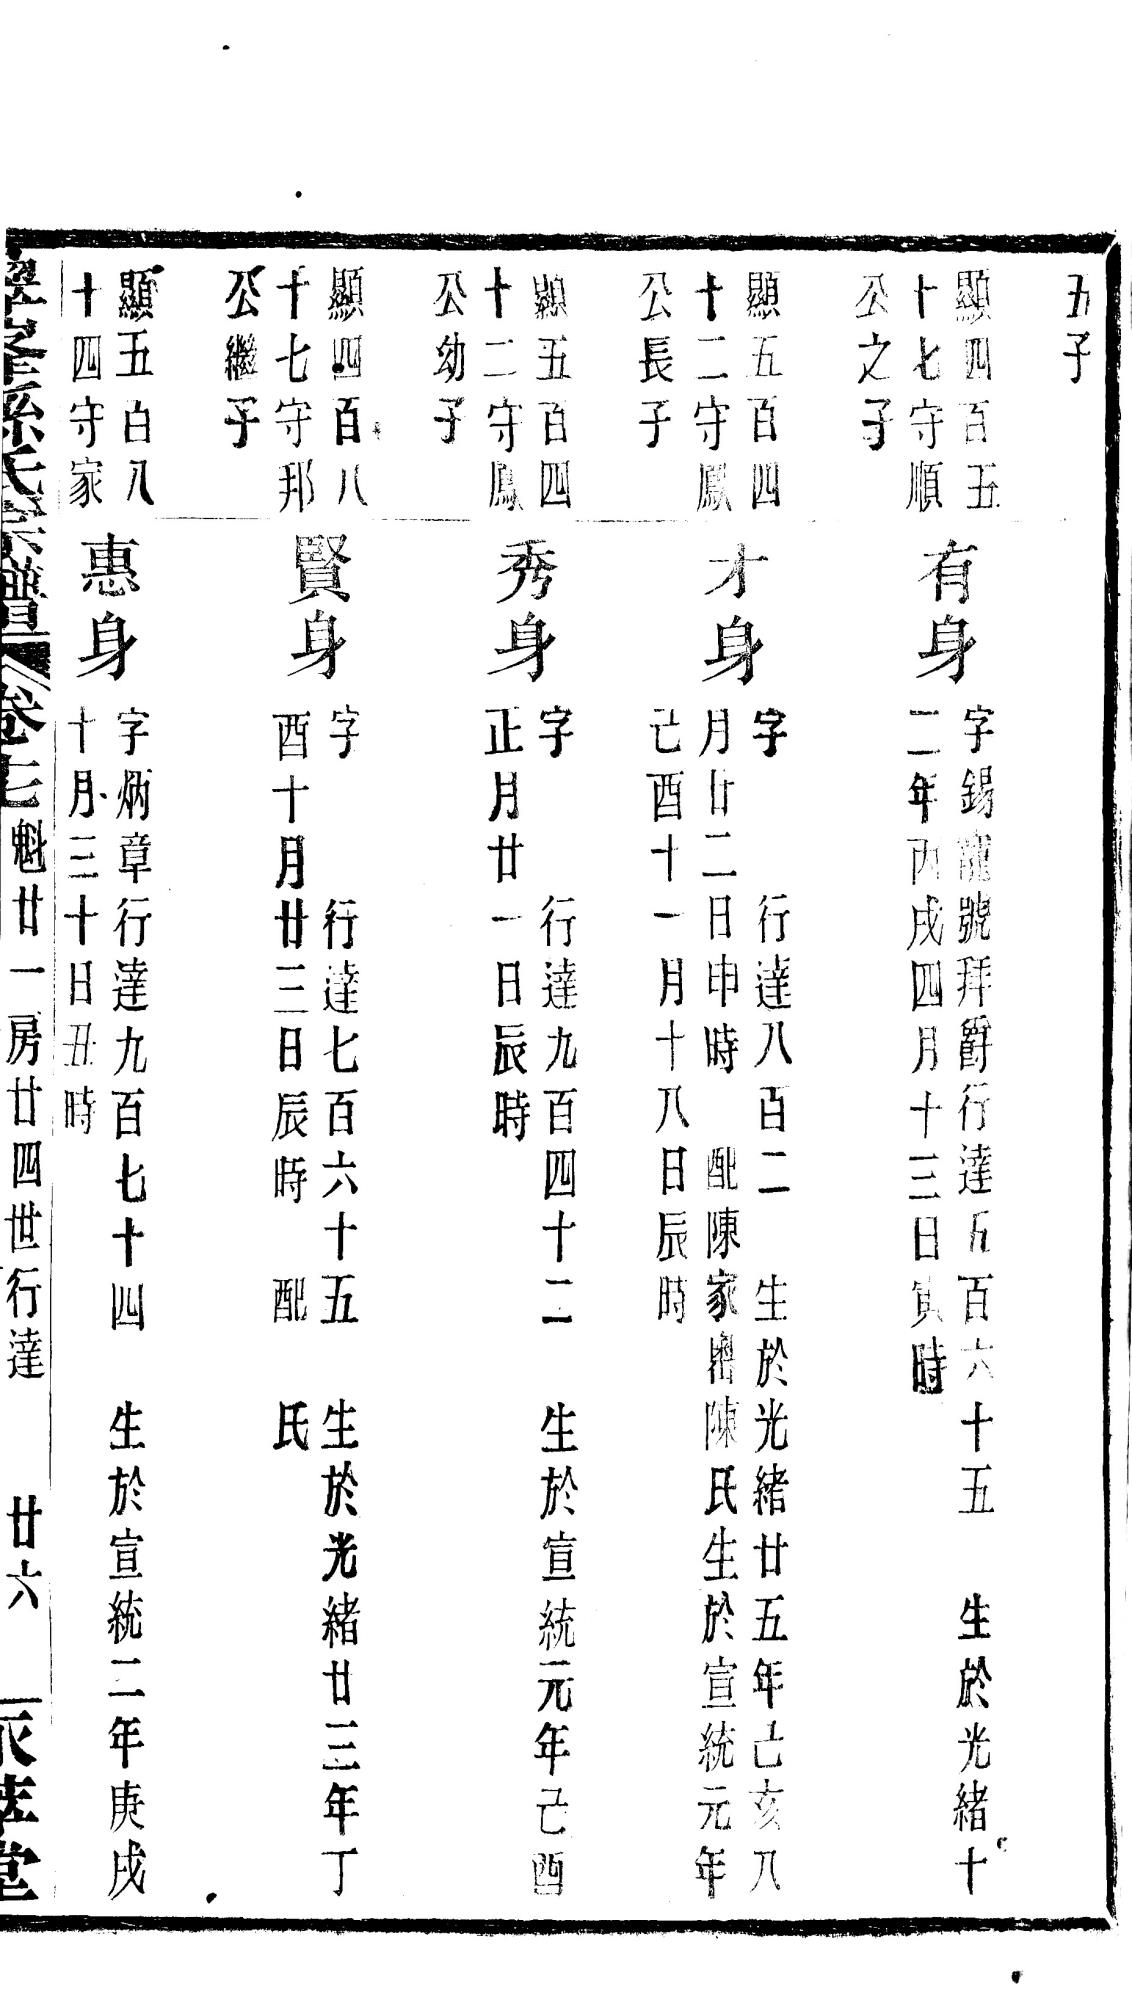 五子
顯四百五
十七守順
公之子
有身
字錫龍號拜爵行達五百六十五　生於光緒十
二年丙戌四月十三日寅時
顯五百四
十二守鳳
公長子
才身
字　　行達八百二　生於光緒廿五年己亥八
月廿二日申時　配陳家嶴陳氏生於宣統元年
己酉十一月十八日辰時
顯五百四
十二守鳳
公幼子
秀身
字　　行達九百四十二　生於宣統元年己酉
正月廿一日辰時
顯四百八
十七守邦
公繼子
賢身
字　　行達七百六十五　生於光緒廿三年丁
酉十月廿三日辰時　配　氏
顯五百八
十四守家
惠身
字炳章行達九百七十四　生於宣統二年庚戌
十月三十日丑時
孫氏宗譜　卷七　魁廿一房廿四世行達　廿六　堂